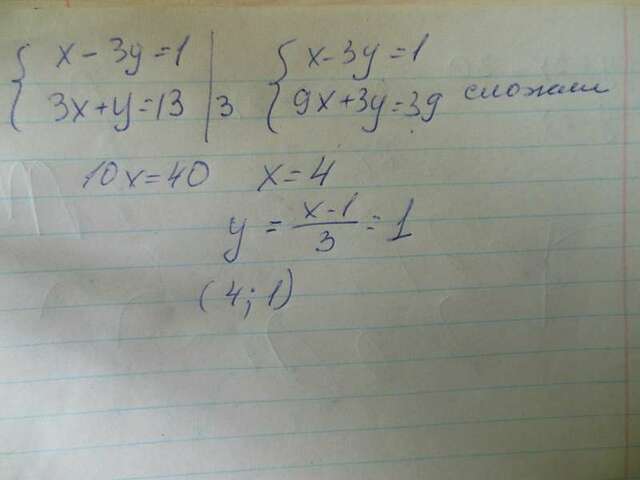 { x - 3y = 1 | { x - 3y = 1
{ 3x + y = 13 | 3 { 9x + 3y = 39 сложим
10x = 40 x = 4
y = (x-1)/3 = 1
(4; 1)